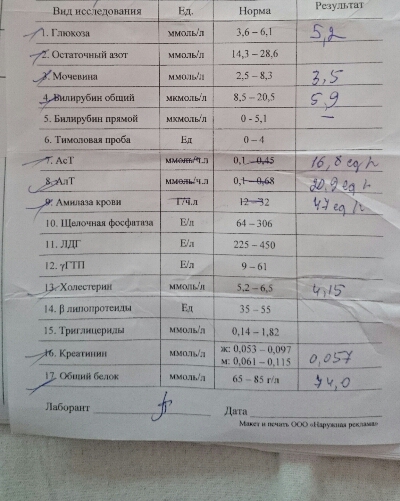 Вид исследования Ед. Норма Результат
1. Глюкоза ммоль/л 3,6 – 6,1 5,2
2. Остаточный азот ммоль/л 14,3 – 28,6
3. Мочевина ммоль/л 2,5 – 8,3 3,5
4. Билирубин общий мкмоль/л 8,5 – 20,5 5,9
5. Билирубин прямой мкмоль/л 0 - 5,1 –
6. Тимоловая проба Ед 0 – 4
7. АсТ ммоль/ч.л 0,1 – 0,45 16,8 ед/л
8. АлТ ммоль/ч.л 0,1 – 0,68 20,9 ед/л
9. Амилаза крови Г/ч.л 12 – 32 47 ед/л
10. Щелочная фосфатаза Е/л 64 – 306
11. ЛДГ Е/л 225 – 450
12. γГТП Е/л 9 – 61
13. Холестерин ммоль/л 5,2 – 6,5 4,15
14. β липопротеиды Ед 35 – 55
15. Триглицериды ммоль/л 0,14 – 1,82
16. Креатинин ммоль/л ж: 0,053 – 0,097 0,057
м: 0,061 – 0,115
17. Общий белок ммоль/л 65 – 85 г/л 74,0
Лаборант Дата
Макет и печать ООО «Наружная реклама»